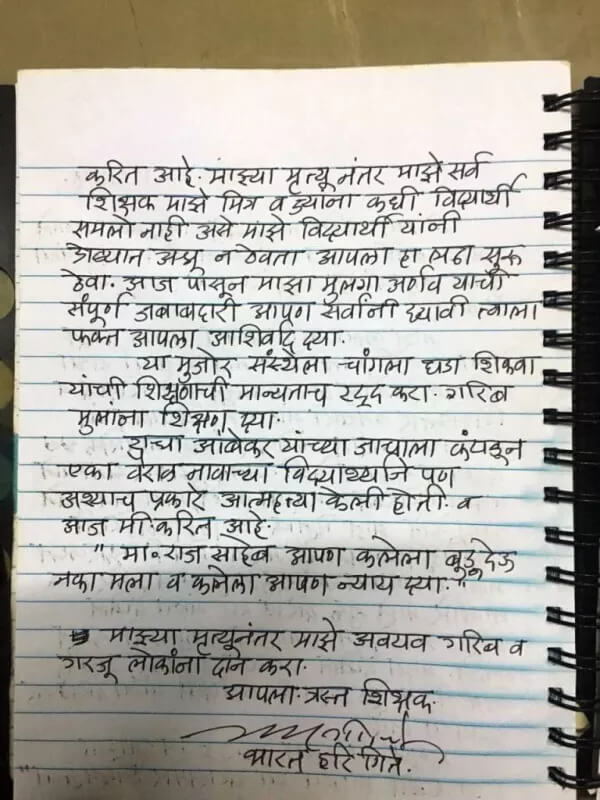 करित आहे. माझ्या मृत्यू नंतर माझे सर्व
शिक्षक माझे मित्र व ज्यांना कधी विद्यार्थी
समलो नाही असे माझे विद्यार्थी यांनी
डोळ्यात अश्रू न ठेवता आपला हा लढा सुरू
ठेवा. आज पासून माझा मुलगा अर्णव याची
संपूर्ण जबाबदारी आपण सर्वांनी घ्यावी त्याला
फक्त आपला आशिर्वाद द्या.
या मुजोर संस्थेला चांगला धडा शिकवा
याची शिक्षणाची मान्यताच रद्द करा. गरिब
मुलांना शिक्षण द्या.
आंबेकर यांच्या जाचाला कंटाळून
एका नावाच्या विद्यार्थ्याने पण
अश्याच प्रकारे आत्महत्या केली होती. व
आज मी करित आहे.
" मा. राज साहेब आपण कलेला बुडू देऊ
नका मला व कलेला आपण न्याय द्या. "
माझ्या मृत्यूनंतर माझे अवयव गरिब व
गरजू लोकांना दान करा.
आपला त्रस्त शिक्षक.
भारत हरि गिते.